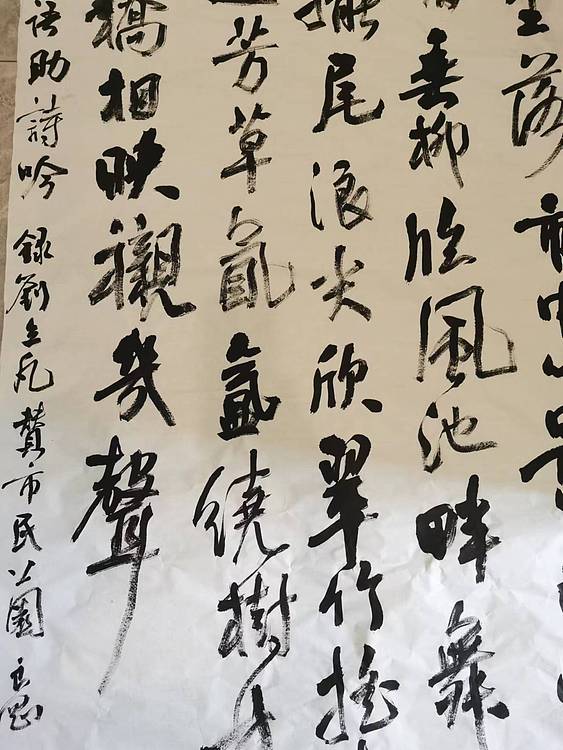 落
垂柳临風池畔舞
尾浪尖欣翠竹搖
芳草氤氳繞樹
橋相映襯幾聲
語助詩吟 錄劉立凡贊市民公園